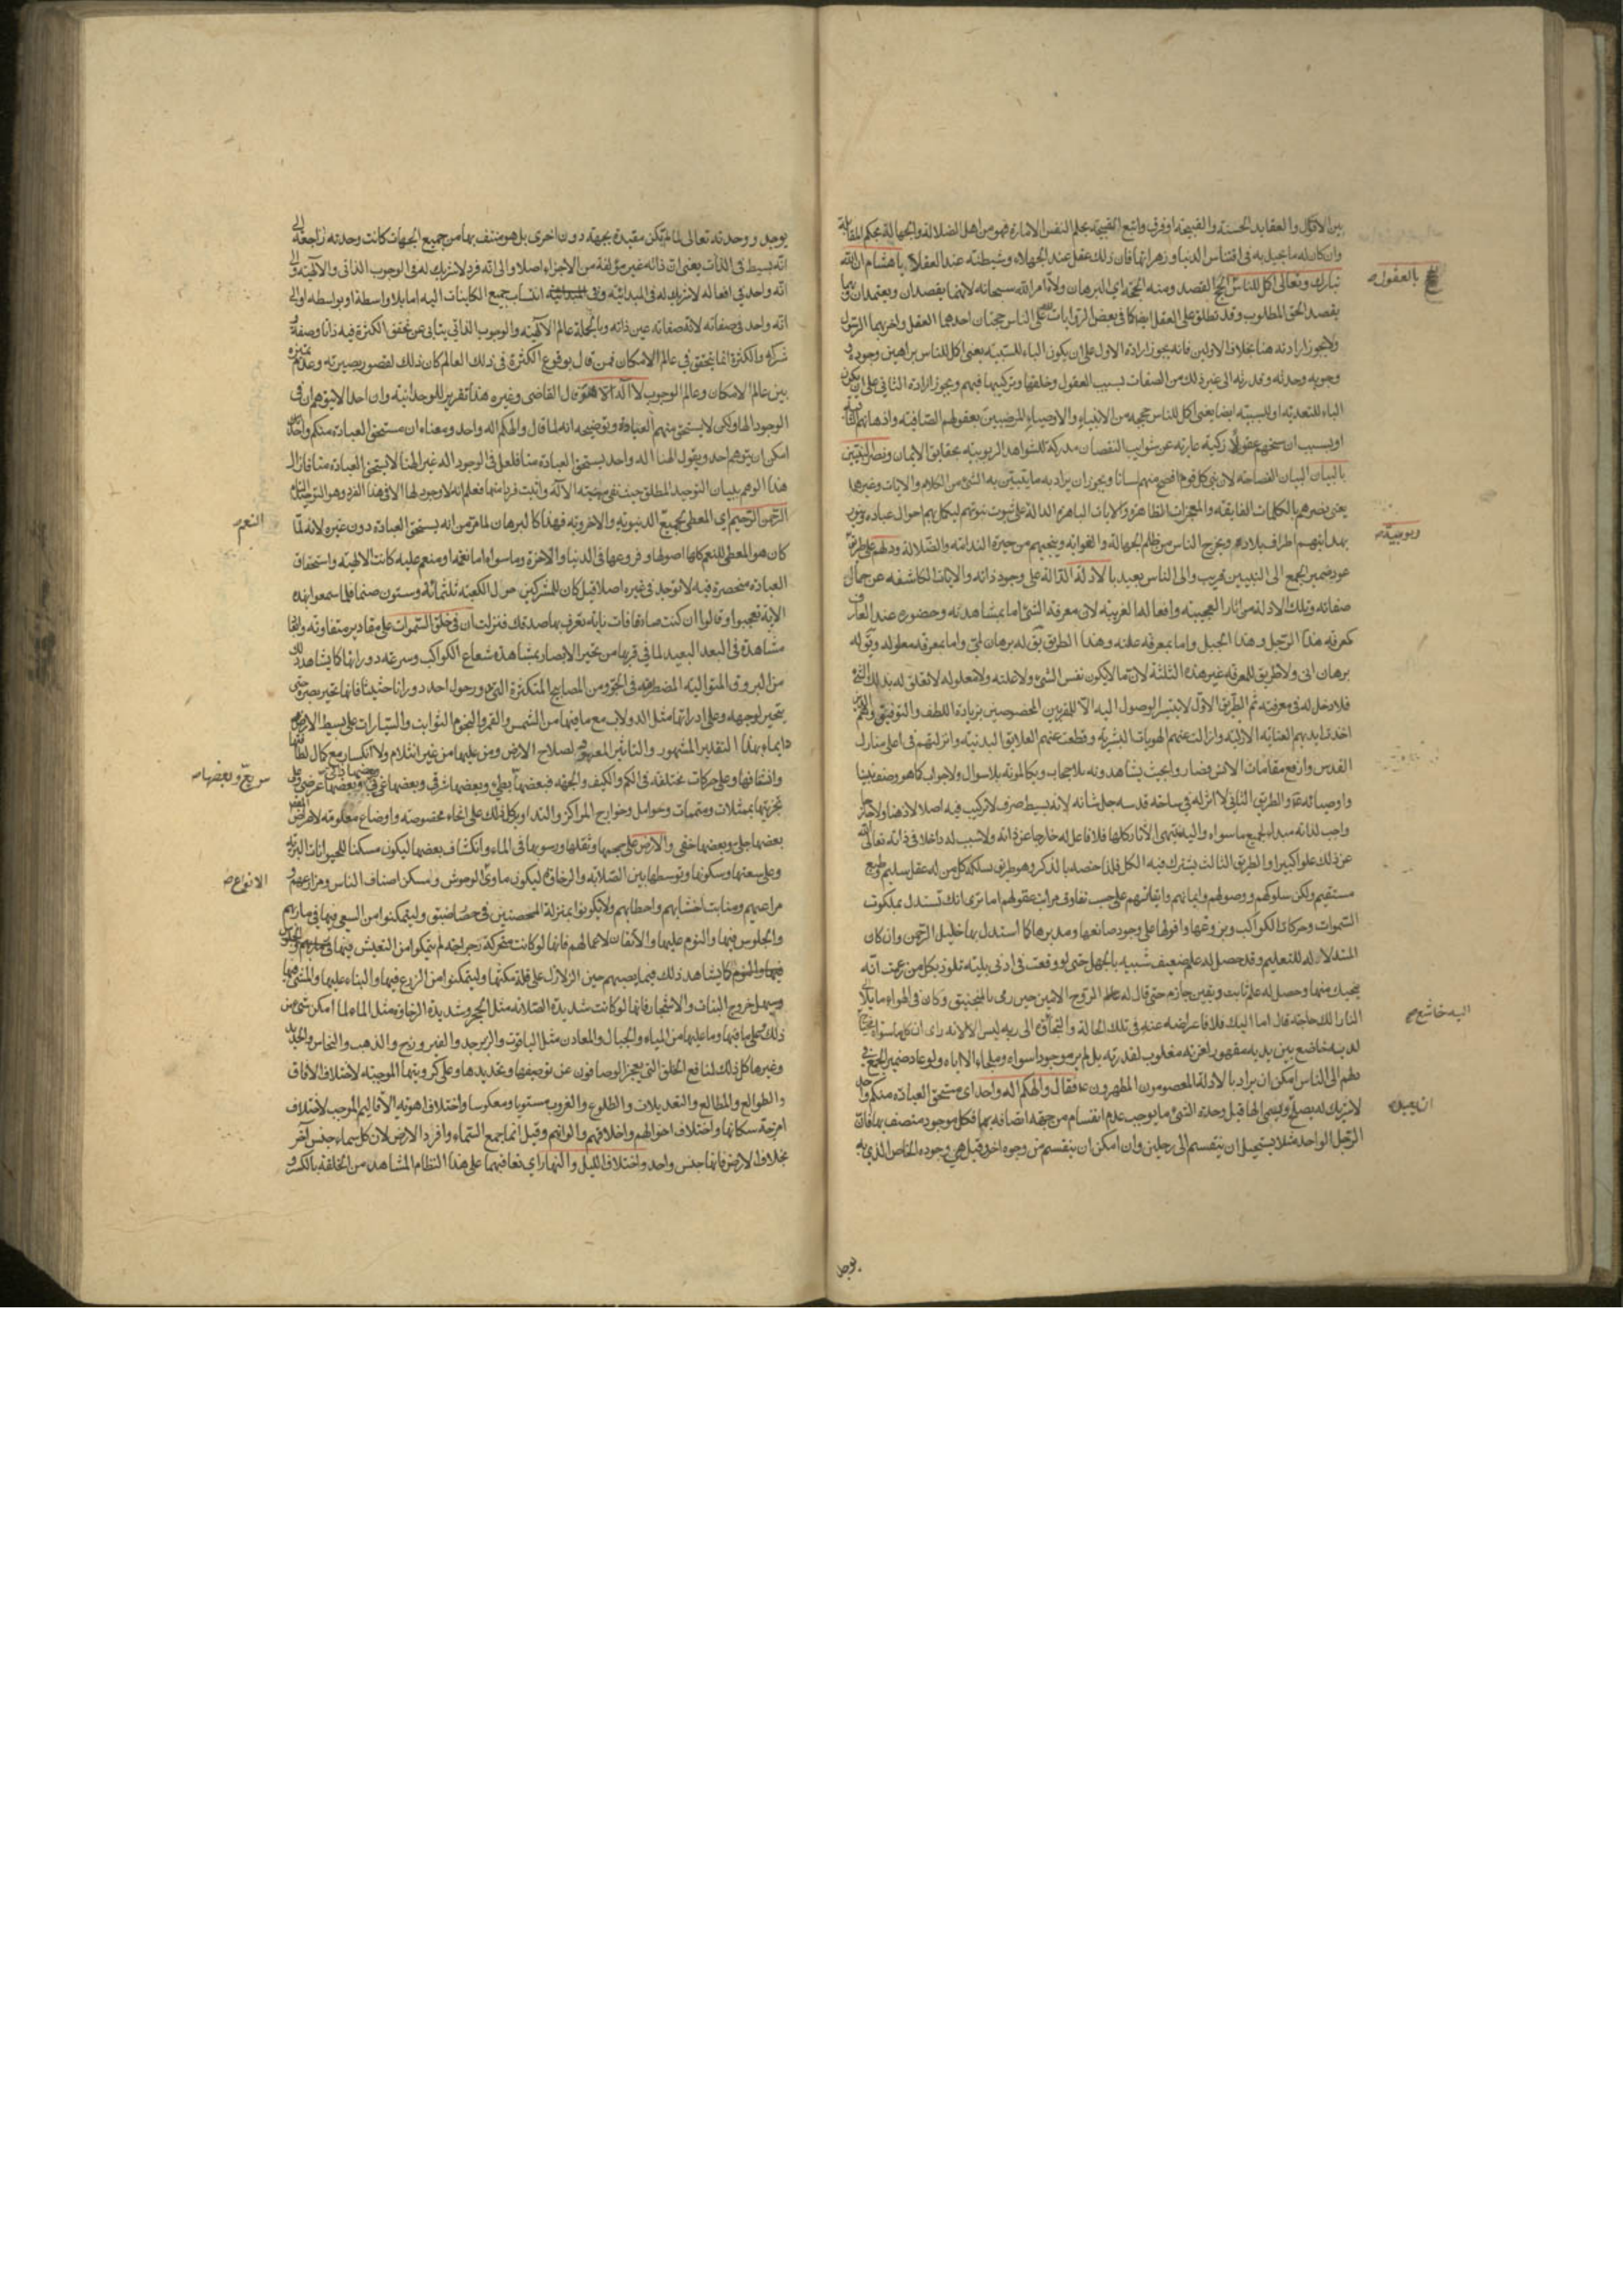 بين الاقوال والعقايد الحسنة والقبيحة او فرق واتبع القبيحة بحكم النفس الامارة فهو من اهل الضلالة والجهالة بحكم المقابلة
وان كان له ما يحيل به في اقتناس الدنيا وزهراتها فان ذلك عقل عند الجهلاء وشيطنة عند العقلاء يا هشام ان الله
تبارك وتعالى اكمل للناس الحجج القصد ومنه الحجة اي البرهان ولاة امر الله سبحانه لانهما يقصدان ويعتمدان وبهما
بالعقول
يقصد الحق المطلوب وقد تطلق على العقل ايضا كما في بعض الروايات على الناس حجتان احدهما العقل واخريهما الرسول
ولا يجوز ارادته هنا بخلاف الاولين فانه يجوز ارادة الاول على ان يكون الباء للسببية يعنى اكمل للناس براهين وجوده و
وجوبه وحدته وقدرته الى غير ذلك من الصفات بسبب العقول وخلقها وتركيبها فيهم ويجوز ارادة الثاني على ان يكون
الباء للتعدية او للسببية ايضا يعنى اكمل للناس حججه من الانبياء والاوصياء المرضيين بعقولهم الصافية واذهانهم
او بسبب ان منحهم عقولا زكية عارية عن شوايب النقصان مدركة للشواهد الربوبية بحقايق الايمان ونصر النبيين
بالبيان البيان الفصاحة لان نبي كل قوم افصح منهم لسانا ويجوز ان يراد به ما يتبين به الشئ من الكلام والايات وغيرها
يعنى نصرهم بالكلمات الفايقة والمعجزات الظاهرة والايات الباهرة الدالة على ثبوت نبوتهم ليكمل بهم احوال عباده وينور
بهدايتهم اطراف بلاده ويخرج الناس من ظلم الجهالة والغواية وينجيهم من حيرة الندامة والضلالة ودلهم على
ربوبيته
عود ضمير الجمع الى النبيين قريب والى الناس بعيد بالادلة الدالة على وجود ذاته والايات الكاشفة عن جمال
صفاته وتلك الادلة من اثار العجيبة وافعاله الغريبة لان معرفة الشئ اما بمشاهدته وحضوره عند العارف
كمعرفة هذا الرجل وهذا الجبل واما بمعرفة علته وهذا الطريق يق له برهان لمى واما بمعرفة معلوله ويق له
برهان انى ولا طريق للمعرفة غير هذه الثلثة لان ما لا يكون نفس الشئ ولا علته ولا معلوله لا تعلق له بذلك الشئ
فلا دخل له في معرفته ثم الطريق الاول لا يتيسر الوصول اليه الا للمقربين المخصوصين بزيادة اللطف والتوفيق
اخذت ايديهم العناية الازلية وازالت عنهم الهويات البشرية وقطعت عنهم العلايق البدنية وانزلتهم في اعلى منازل
القدس وارفع مقامات الانس فصاروا بحيث يشاهدونه بلا حجاب ويكالمونه بلا سؤال ولا جواب كما هو وصف نبينا
واوصيائه ع والطريق الثاني لا اثر له في ساحة قدسه جل شانه لانه بسيط صرف لا تركيب فيه اصلا لا ذهنا ولا خارجا
واجب لذاته مبداء لجميع ما سواه واليه ينتهى الاثار كلها فلا فاعل له خارجا عن ذاته ولا سبب له داخلا في ذاته تعالى الله
عن ذلك علوا كبيرا والطريق الثالث يشترك فيه الكل فلذا خصه بالذكر وهو طريق يسلكه كل من له عقل سليم وطبع
مستقيم ولكن سلوكهم ووصولهم وايمانهم وايقانهم على حسب تفاوت مراتب عقولهم اما ترى انك تستدل بملكوت
السموات وحركات الكواكب وبزوغها وافولها على وجود صانعها ومدبرها كما استدل بها خليل الرحمن وان كان
المستدل له للتعليم وقد حصل له علم ضعيف شبيه بالجهل حتى لو وقعت في ادنى بلية تلوذ بكل من زعمت انه
ينجيك منها وحصل له علم ثابت ويقين جازم حتى قال له الروح الامين حين رمى بالمنجنيق وكان في الهواء مايلا الى
النار الك حاجة قال اما اليك فلا فاعراضه عنه في تلك الحالة والتجاؤه الى ربه ليس الا لانه راى ان كلما سواه محتاج
اليه خاشع
لديه خاضع بين يديه مقهور لعزته مغلوب لقدرته بل لم ير موجودا سواه وملجاء الا اياه ولو عاد ضمير الجمع في
دلهم الى الناس امكن ان يراد بالادلة المعصومون المطهرون ع فقال والهكم اله واحد اي مستحق العبادة منكم واحد
لا شريك له يصلح ويسمى الها قبل وحدة الشئ ما يوجب عدم انقسام من جهة اتصافه بها فكل موجود متصف بها فان
ان يعبد
الرجل الواحد مثلا يستحيل ان ينقسم الى رجلين وان امكن ان ينقسم من وجوه اخر وقيل هي وجوده الخاص الذي به
يوجد
يوجد ووحدته تعالى لما لم تكن مقيدة بجهة دون اخرى بل هو متصف بها من جميع الجهات كانت وحدته راجعة الى
انه بسيط في الذات يعنى ان ذاته غير مؤلفة من الاجزاء اصلا والى انه فرد لا شريك له في الوجوب الذاتى والالهية والى
انه واحد في افعاله لا شريك له في المبدائية وفي انتساب جميع الكاينات اليه اما بلا واسطة او بواسطة والى
انه واحد في صفاته لانه صفاته عين ذاته وبالجملة عالم الالهية والوجوب الذاتي يتابى عن تحقق الكثرة فيه ذاتا وصفة و
شركة والكثرة انما يتحقق في عالم الامكان فمن قال بوقوع الكثرة في ذلك العالم كان ذلك لقصور بصيرته وعدم تميزه
بين عالم الامكان وعالم الوجوب لا اله الا هو قال القاضى وغيره هذا تقرير للوحدانية وان احدا لا يتوهم ان في
الوجود الها ولكن لا يستحق منهم العبادة وتوضيحه انه لما قال والهكم اله واحد ومعناه ان مستحق العبادة منكم واحد
امكن ان يتوهم احد ويقول الهنا اله واحد يستحق العبادة منا فلعل في الوجود اله غير الهنا لا يستحق العبادة منا فازال
هذا الوهم ببيان التوحيد المطلق حيث نفى مهية الاله واثبت فردا منها فعلم انه لا وجود لها الا في هذا الفرد وهو التوحيد التام
الرحمن الرحيم اي المعطى لجميع الدنيوية والاخروية فهذا كالبرهان لما مر من انه يستحق العبادة دون غيره لانه لما
النعم
كان هو المعطى للنعم كلها اصولها وفروعها في الدنيا والاخرة وما سواه اما نعمة او منعم عليه كانت الالهية واستحقاق
العبادة منحصرة فيه لا توجد في غيره اصلا قيل كان للمشركين حول الكعبة ثلثمائة وستون صنما فلما سمعوا هذه
الاية تعجبوا وقالوا ان كنت صادقا فات باية نعرف بها صدقك فنزلت ان في خلق السموات على مقادير متفاوتة
مشاهدة في البعد البعيد لما في قربها من تحير الابصار بمشاهدة شعاع الكواكب وسرعة دورانها كما يشاهد ذلك
من البروق المتوالية المضطربة في الجو ومن المصابيح المتكثرة التي يدور حول احد دورانا حثيثا فانها تحير بصره حتى
يتحير لوجهه وعلى ادراتها مثل الدولاب مع ما فيها من الشمس والقمر والنجوم الثوابت والسيارات على بسيط الارض
دايما بهذا التقدير المشهور والتاثير المعهود لصلاح الارض ومن عليها من غير انثلام ولا انكسار مع كمال لطافتها
واشفافها وعلى حركات مختلفة في الكم والكيف والجهة فبعضها بطئ وبعضها شرقي وبعضها غربي وبعضها عرضى وعلى
سريع وبعضها
تجزيتها بممثلات ومتممات وحوامل وخوارج المراكز والتداوير كل ذلك على انحاء مخصوصة واوضاع معلومة لاغراض
بعضها جلى وبعضها خفى والارض على حجمها وثقلها ورسوبها في الماء وانكشاف بعضها ليكون مسكنا للحيوانات البرية
وعلى سعتها وسكونها وتوسطها بين الصلابة والرخاوة ليكون ماوى الوحوش ومسكن اصناف الناس ومزارعهم و
الانواع
مراعيهم ومنابت اخشابهم واحطابهم ولا يكونوا بمنزلة المحصنين في حصار ضيق وليتمكنوا من السعى فيها في ماربهم
والجلوس فيها والنوم عليها والاتقان لاعمالهم فانها لو كانت متحركة رجراجة لم يتمكنوا من التعيش فيها
كما يشاهد ذلك فيما يصيبهم حين الزلازل على قلة مكثها وليتمكنوا من الزرع فيها والبناء عليها والمشى فيها
ويسهل خروج النبات والاشجار فانها لو كانت شديدة الصلابة مثل الحجر وشديدة الرخاوة مثل الماء لما امكن شئ من
ذلك وعلى ما فيها وما عليها من المياه والجبال والمعادن مثل الياقوت والزبرجد والفيروزج والذهب والنحاس والحديد
وغيرها كل ذلك لمنافع الخلق التي يعجز الوصافون عن توصيفها وتحديدها وعلى كرويتها الموجبة لاختلاف الافاق
والطوالع والمطالع والتعديلات والطلوع والغروب مستويا ومعكوسا واختلاف اهوية الاقاليم الموجب لاختلاف
امزجة سكانها واختلاف احوالهم واخلاقهم والوانهم وقيل انما جمع السماء وافرد الارض لان كل سماء جنس آخر
بخلاف الارض فانها جنس واحد واختلاف الليل والنهار اي تعاقبهما على هذا النظام المشاهد من الخلفة بالكر و